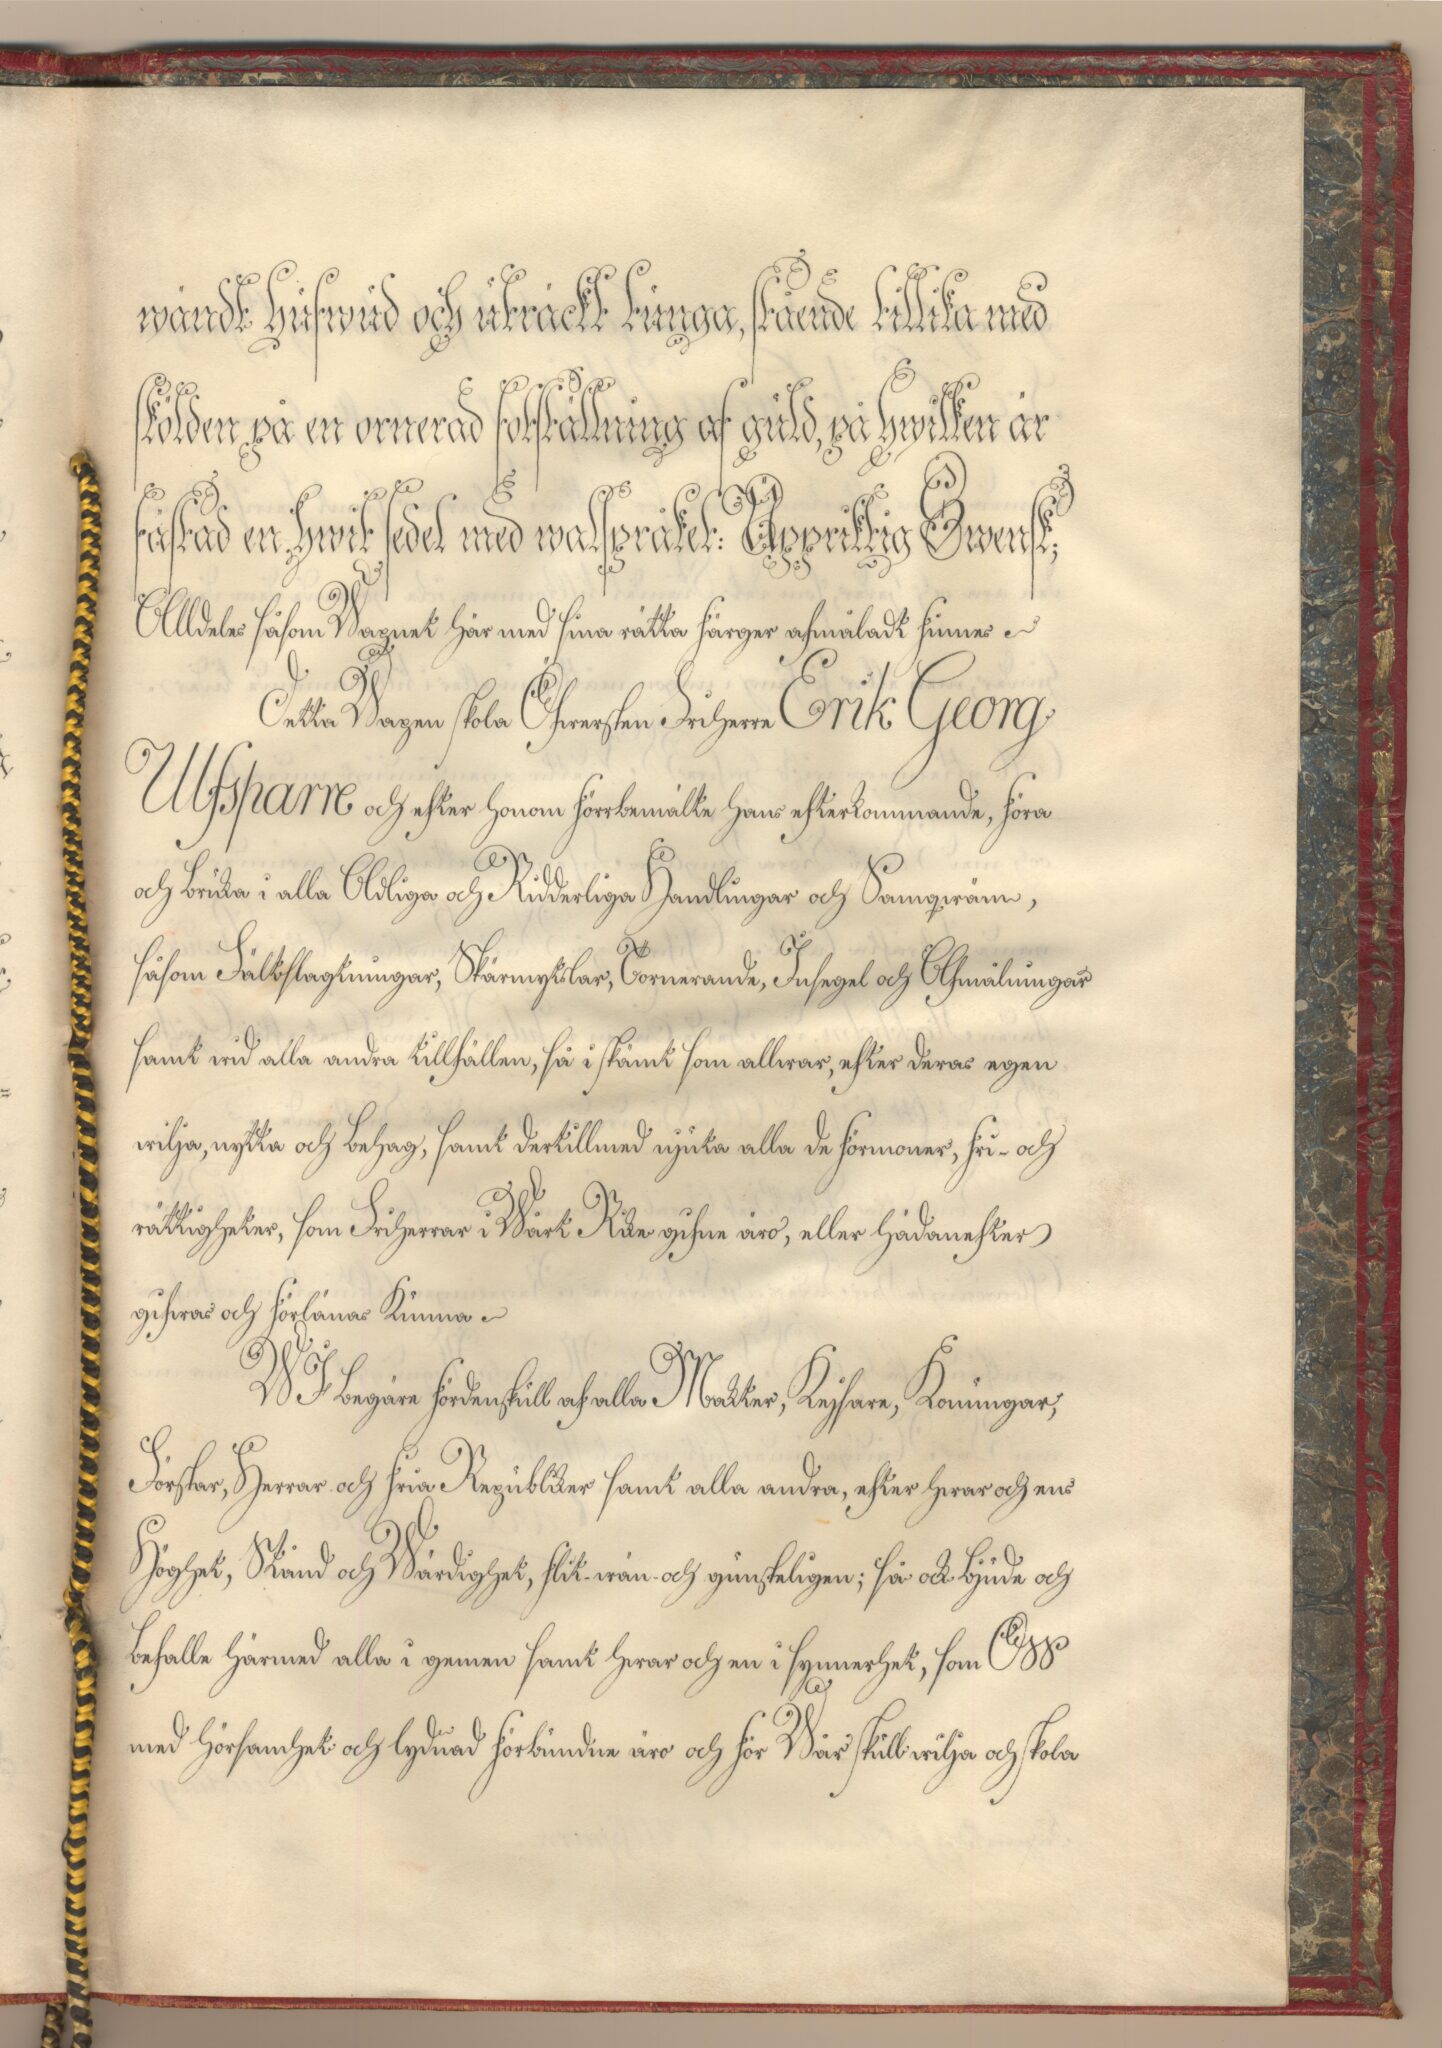 wändt hufwud och uträckt tunga, stående tillika med
skölden på en ornerad fotställning af guld, på hwilken är
fästad en hwit sedel med walspråket: Uppriktig Swensk;
Alldeles såsom Wapnet här med sina rätta färger afmåladt finnes
Detta Wapen skola Öfwersten Friherre Erik Georg
Ulfsparre och efter honom förrbemälte hans efterkommande, föra
och bruka i alla Adliga och Ridderliga Handlingar och Samqwäm,
såsom Fältslagtningar, Skärmytslar, Tornerande, Insegel och Afmålningar
samt wid alla andra tillfällen, så i skämt som allwar, efter deras egen
wilja, nytta och behag, samt dertillmed njuta alla de förmoner, fri- och
rättigheter, som Friherrar i Wårt Rike gifne äro, eller hädanefter
gifwas och förlänas kunna
WI begäre fördenskull af alla Makter, Kejsare, Konungar,
Förstar, Herrar och fria Republiker samt alla andra, efter hwar och ens
Höghet, Stånd och Wärdighet, flit-wän-och gunsteligen; så ock bjude och
befalle härmed alla i gemen samt hwar och en i synnerhet, som Oss
med hörsamhet och lydnad förbundne äro och för Wår skull wilja och skola